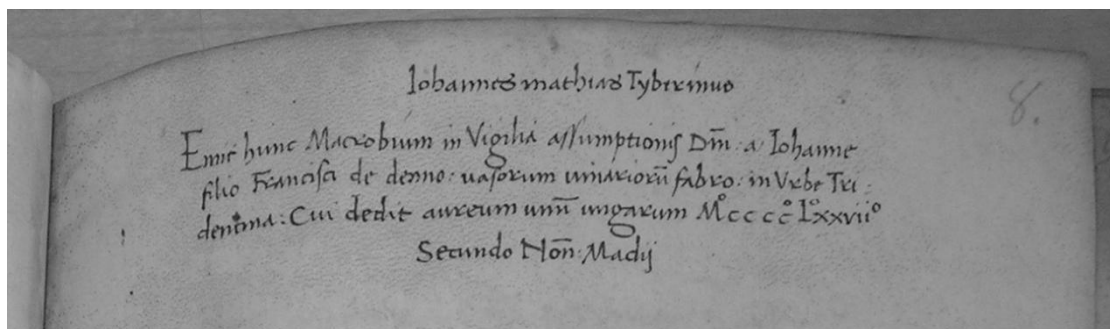 Iohannes mathias Tyberinus
Emit hunc Macrobium in Vigilia assumptionis Dm̄. a Iohanne
filio Francisci de denno: uasorum uinariorū fabro: in Vrbe Tri:
dentina: Cui dedit aureum unū ungarum M°cccc° L°xxvii°
Secundo Noñ: Madij
8.